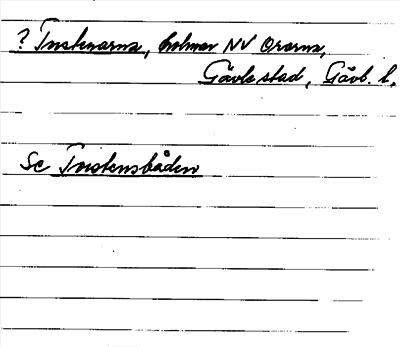 ? Trostenarna, holmar NV Orarna,
Gävle stad, Gävl. l.
Se Trostensbåden